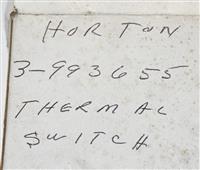 HORTON
3-993655
THERMAL
SWITCH